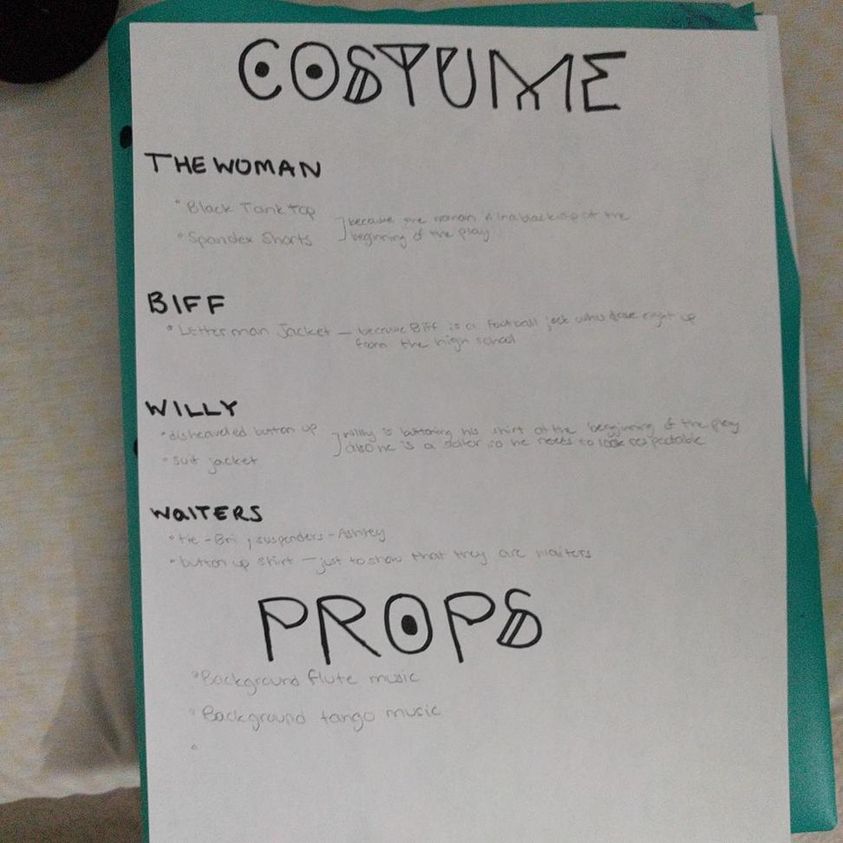 COSTUME
THE WOMAN
• Black Tank Top
• Spandex Shorts
] because the woman is in a black slip at the
beginning of the play
BIFF
• Letterman Jacket — because Biff is a football jock who
from the high school
WILLY
• disheaveled button up
• suit jacket
] willy is buttoning his shirt at the beginning of the play
also he is a so he needs to look respectable
WAITERS
• tie - Bri , suspenders - Ashley
• button up shirt — just to show that they are waiters
PROPS
• Background flute music
• Background tango music
•